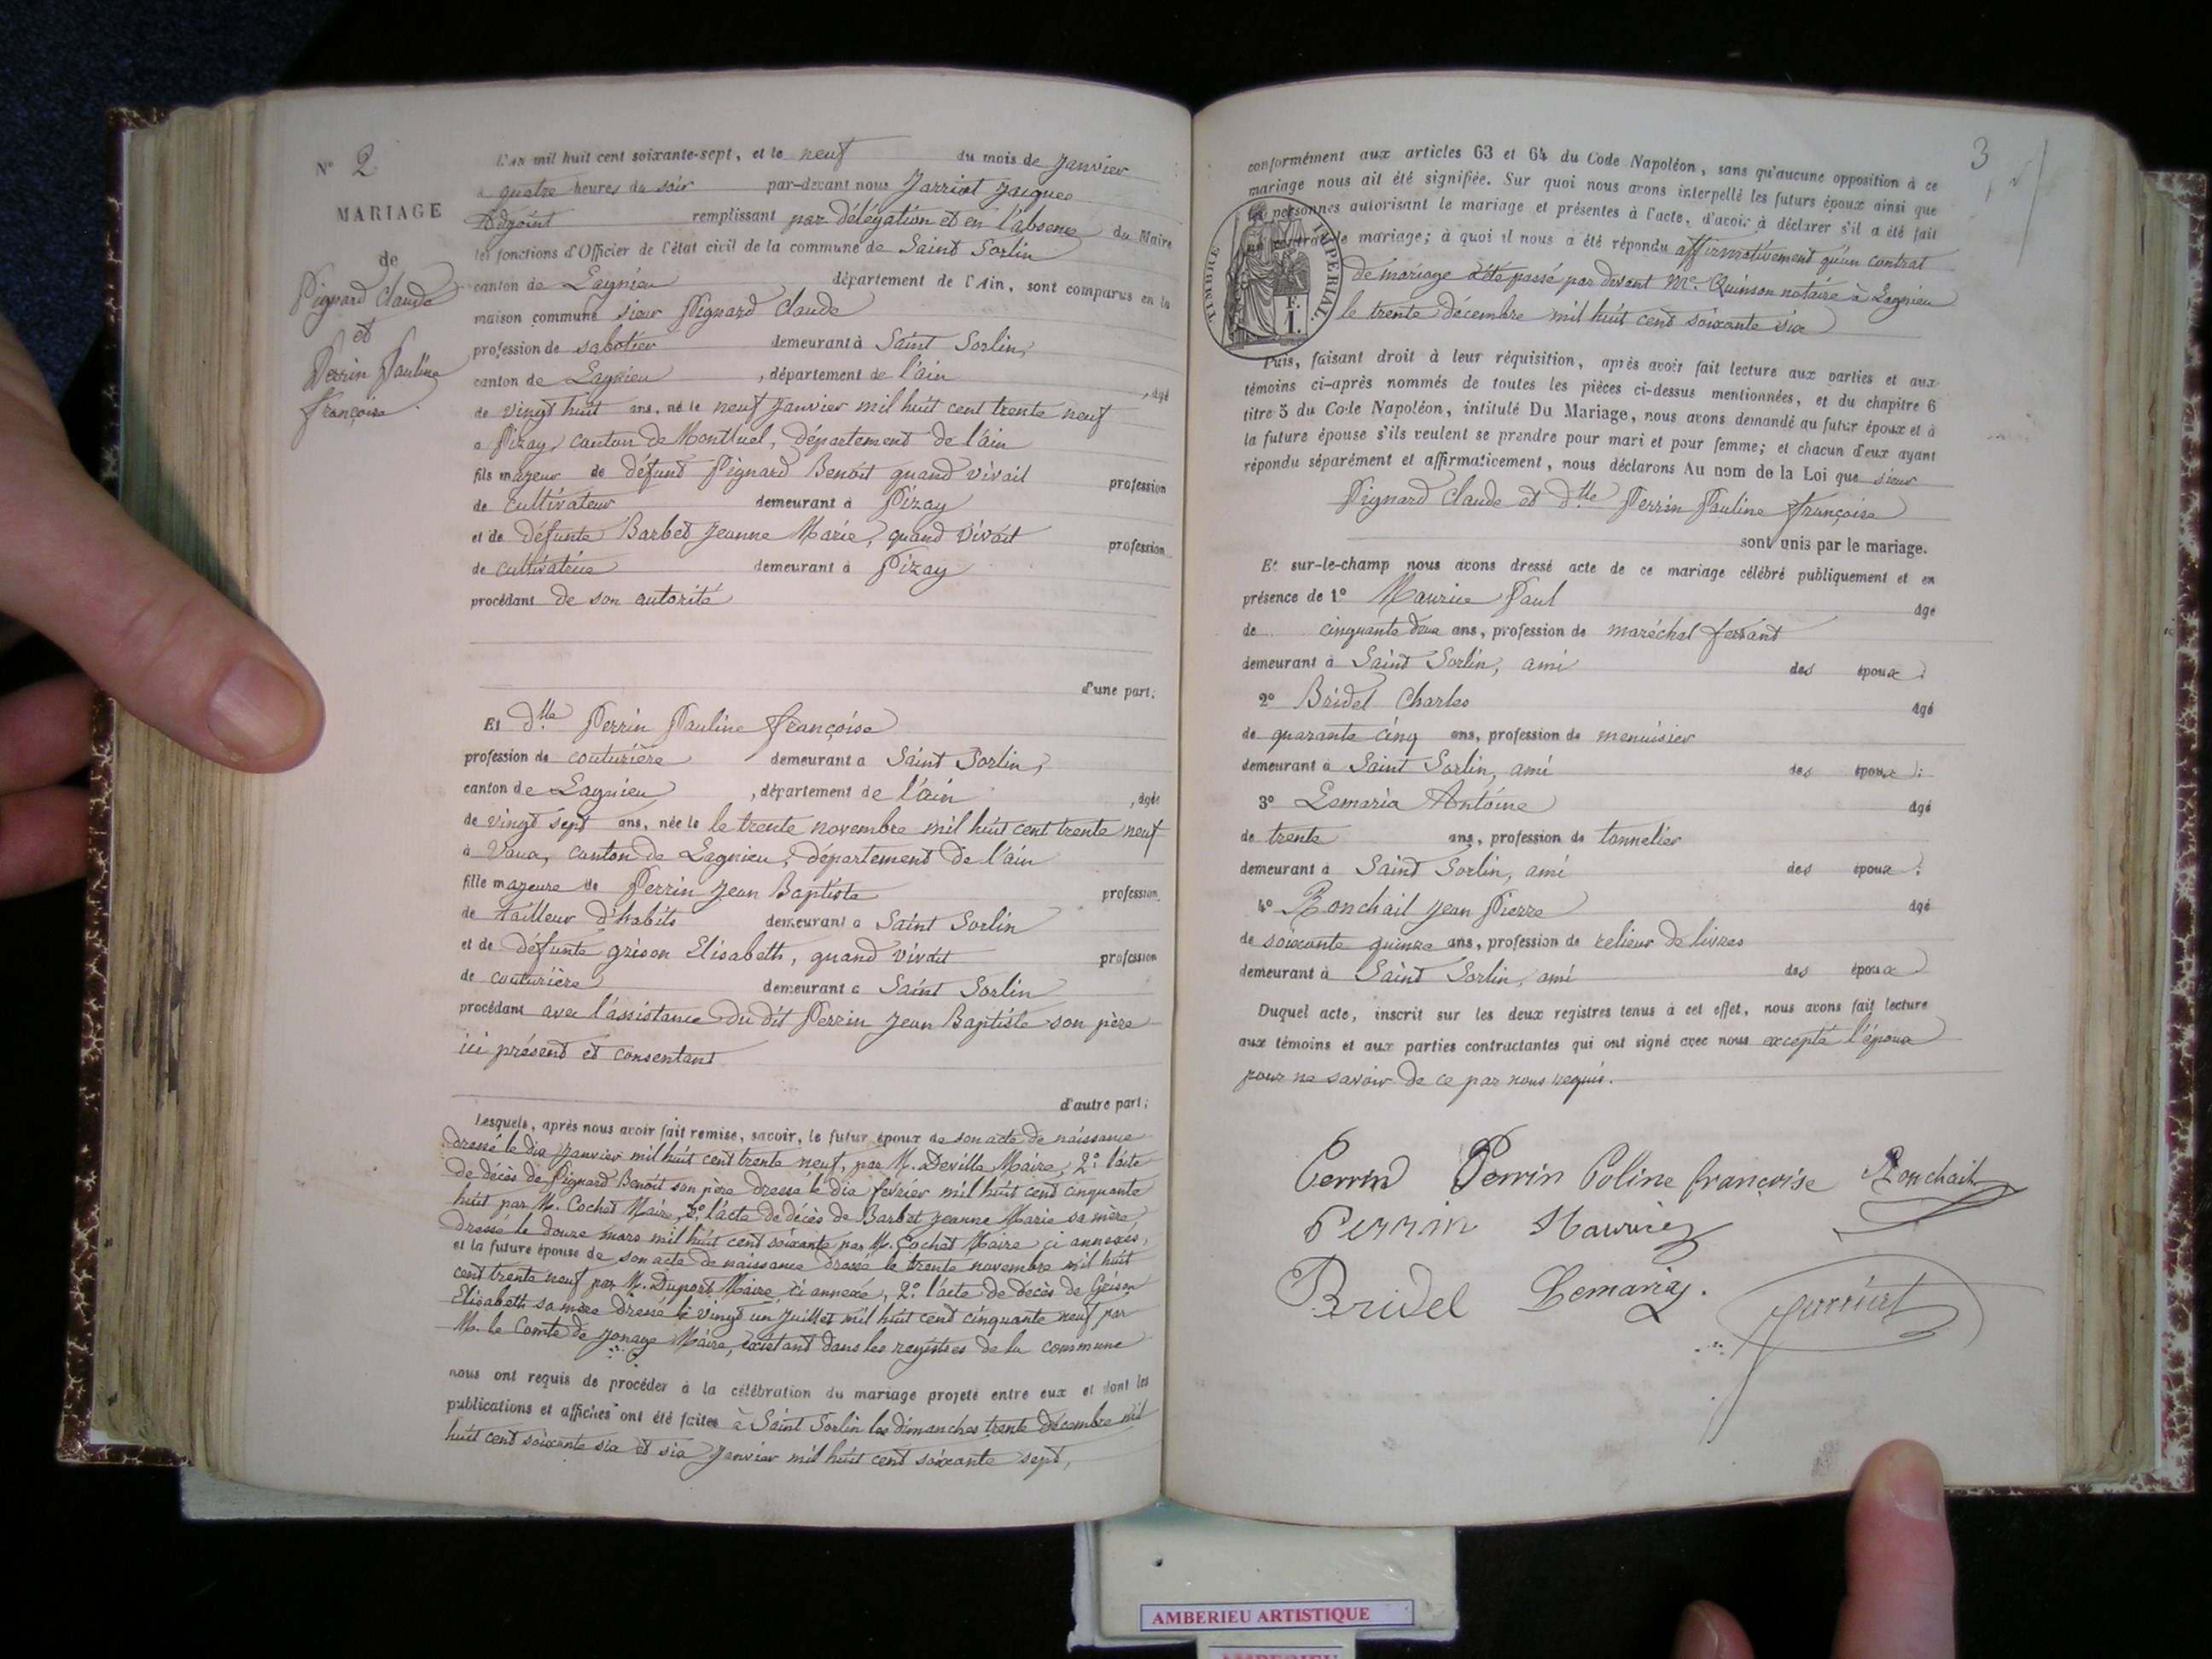 N° 2
MARIAGE
de
Pignard Claude
et
Perrin Pauline
françoise
L'AN mil huit cent soixante-sept, et le neuf du mois de Janvier
à quatre heures du soir par-devant nous Jarriot Jacques
Adjoint remplissant par délégation et en l'absence du Maire
les fonctions d'Officier de l'état civil de la commune de Saint Sorlin
canton de Lagnieu département de l'Ain, sont comparus en la
maison commune sieur Pignard Claude
profession de sabotier demeurant à Saint Sorlin,
canton de Lagnieu, département de l'ain, âgé
de vingt huit ans, né le neuf Janvier mil huit cent trente neuf
à Pizay, canton de Montluel, département de l'ain
fils majeur de défunt Pignard Benoit quand vivait profession
de cultivateur demeurant à Pizay
et de défunte Barbet Jeanne Marie, quand vivait profession
de cultivatrice demeurant à Pizay
procédant de son autorité
d'une part;
Et dlle Perrin Pauline françoise
profession de couturière demeurant à Saint Sorlin,
canton de Lagnieu, département de l'ain, âgée
de vingt sept ans, née le le trente novembre mil huit cent trente neuf
à Vaux, canton de Lagnieu, département de l'ain
fille majeure de Perrin Jean Baptiste profession
de tailleur d'habits demeurant à Saint Sorlin
et de défunte grison Elisabeth, quand vivait profession
de couturière demeurant à Saint Sorlin
procédant avec l'assistance du dit Perrin Jean Baptiste son père
ici présent et consentant
d'autre part;
Lesquels, après nous avoir fait remise, savoir, le futur époux de son acte de naissance
dressé le dix Janvier mil huit cent trente neuf, par M. Deville Maire, 2° l'acte
de décès de Pignard Benoit son père dressé le dix fevrier mil huit cent cinquante
huit par M. Cochet Maire, 3° l'acte de décès de Barbet Jeanne Marie sa mère,
dressé le douze mars mil huit cent soixante par M. Cochet Maire ci annexés,
et la future épouse de son acte de naissance dressé le trente novembre mil huit
cent trente neuf par M. Duport Maire ci annexé, 2° l'acte de décès de Grison
Elisabeth sa mère dressé le vingt un Juillet mil huit cent cinquante neuf par
M. le Comte de Jonage Maire, existant dans les registres de la commune
nous ont requis de procéder à la célébration du mariage projeté entre eux et dont les
publications et affiches ont été faites à Saint Sorlin les dimanches trente décembre mil
huit cent soixante six et six Janvier mil huit cent soixante sept,
3
conformément aux articles 63 et 64 du Code Napoléon, sans qu'aucune opposition à ce
mariage nous ait été signifiée. Sur quoi nous avons interpellé les futurs époux ainsi que
les personnes autorisant le mariage et présentes à l'acte, d'avoir à déclarer s'il a été fait
un contrat de mariage; à quoi il nous a été répondu affirmativement qu'un contrat
de mariage a été passé par devant Me. Quinson notaire à Lagnieu
le trente décembre mil huit cent soixante six
TIMBRE IMPERIAL.
F.
1.
Puis, faisant droit à leur réquisition, après avoir fait lecture aux parties et aux
témoins ci-après nommés de toutes les pièces ci-dessus mentionnées, et du chapitre 6
titre 5 du Code Napoléon, intitulé Du Mariage, nous avons demandé au futur époux et à
la future épouse s'ils veulent se prendre pour mari et pour femme; et chacun d'eux ayant
répondu séparément et affirmativement, nous déclarons Au nom de la Loi que sieur
Pignard Claude et dlle Perrin Pauline françoise
sont unis par le mariage.
Et sur-le-champ nous avons dressé acte de ce mariage célébré publiquement et en
présence de 1° Maurice Paul âgé
de cinquante deux ans, profession de maréchal ferrant
demeurant à Saint Sorlin, ami des époux;
2° Bridel Charles âgé
de quarante cinq ans, profession de menuisier
demeurant à Saint Sorlin, ami des époux;
3° Lemaria Antoine âgé
de trente ans, profession de tonnelier
demeurant à Saint Sorlin, ami des époux;
4° Ronchail Jean Pierre âgé
de soixante quinze ans, profession de relieur de livres
demeurant à Saint Sorlin, ami des époux
Duquel acte, inscrit sur les deux registres tenus à cet effet, nous avons fait lecture
aux témoins et aux parties contractantes qui ont signé avec nous excepté l'époux
pour ne savoir de ce par nous requis.
Perrin Perrin Poline françoise Ronchail
Perrin Maurice
Bridel Lemaria. Jarriot
AMBERIEU ARTISTIQUE
AMBERIEU